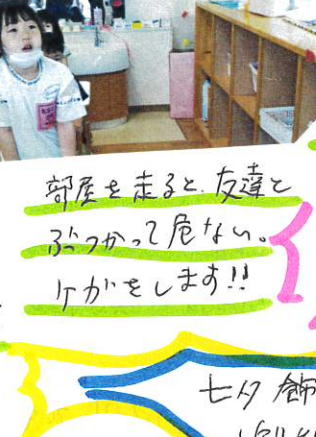 部屋を走ると、友達と
ぶつかって危ない。
ケガをします!!
七夕飾